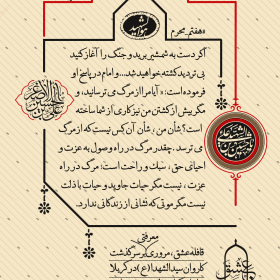 هفتم محرم
اگر دست به شمشیر برید و جنگ را آغاز کنید
بی تردید کشته خواهید شد... و امام در پاسخ او
فرموده است: «آیا مرا از مرگ می ترسانید، و
مگر بیش از کشتن من نیز کاری از شما ساخته
است؟ شأن من، شأن آن کس نیست که از مرگ
می ترسد. چقدر مرگ در راه وصول به عزت و
احیای حق، سبک و راحت است؛ مرگ در راه
عزت، نیست مگر حیات جاوید و حیات با ذلت
نیست مگر موتی که نشانی از زندگانی ندارد.
معرفی
قافله عشق، مروری بر سرگذشت
کاروان سیدالشهدا (ع) در کربلا